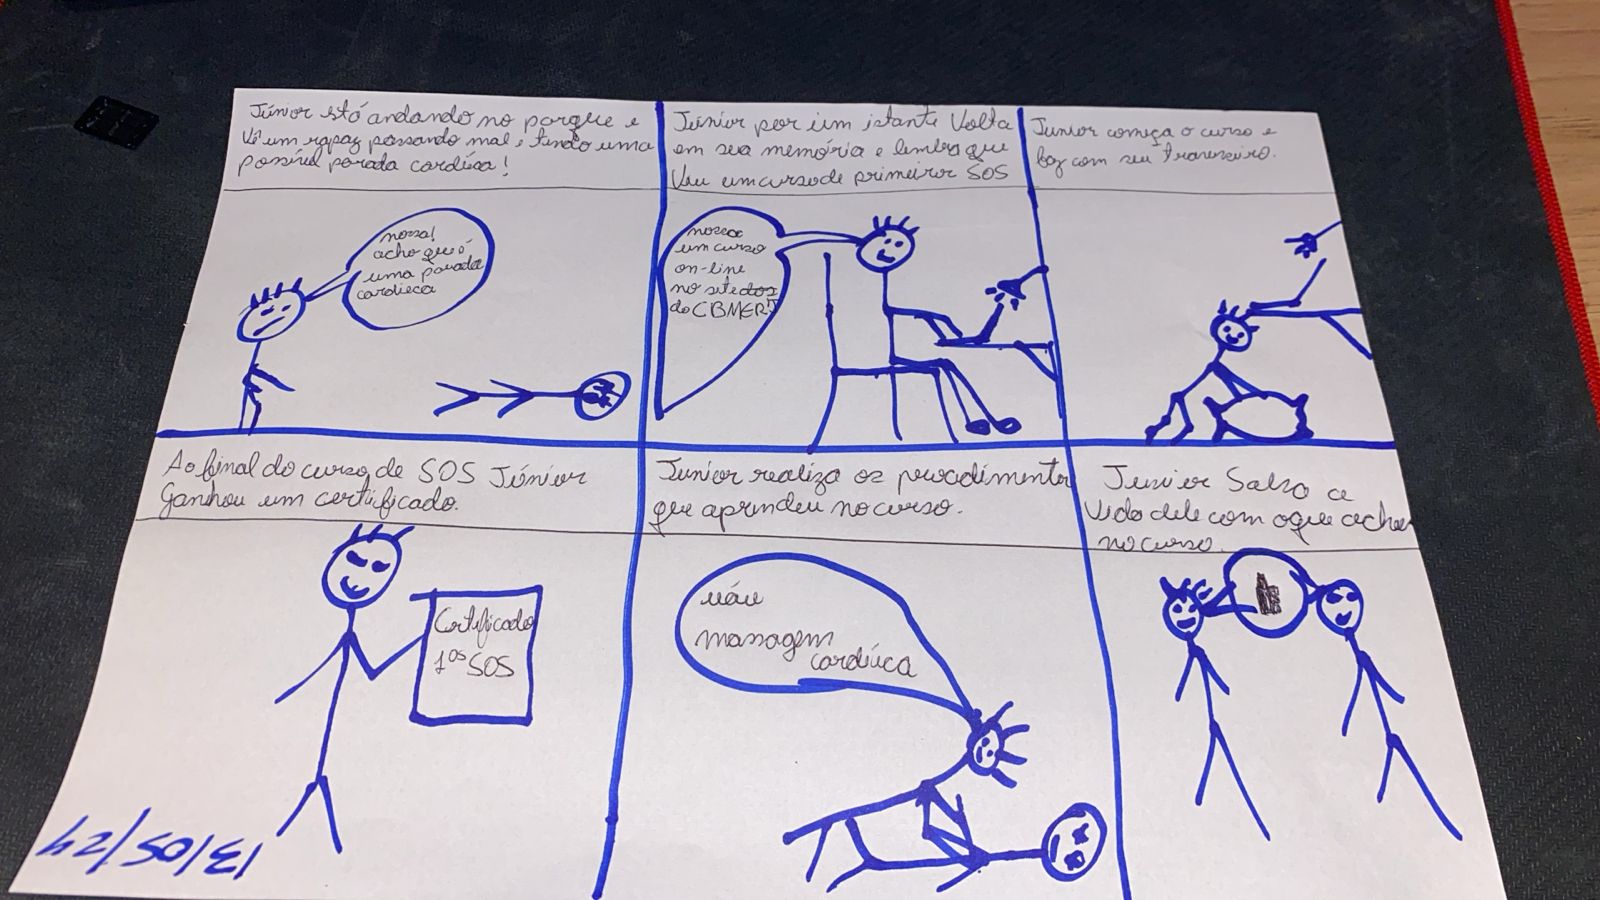 Júnior está andando no parque e
Vê um rapaz passando mal, tendo uma
possível parada cardíaca!
nossa!
acho que é
uma parada
cardieca
Júnior por um istante Volta
em sua memória e lembra que
Viu um curso de primeiros SOS
nossa
um curso
on-line
no site dos
do CBMERJ
Junior começa o curso e
faz com seu travesseiro.
Ao final do curso de SOS Júnior
Ganhou um certificado.
Certificado
1os SOS
Junior realiza os procedimentos
que aprendeu no curso.
massagem
cardíaca
Junior Salva a
Vida dele com oque
no curso.
13/05/24